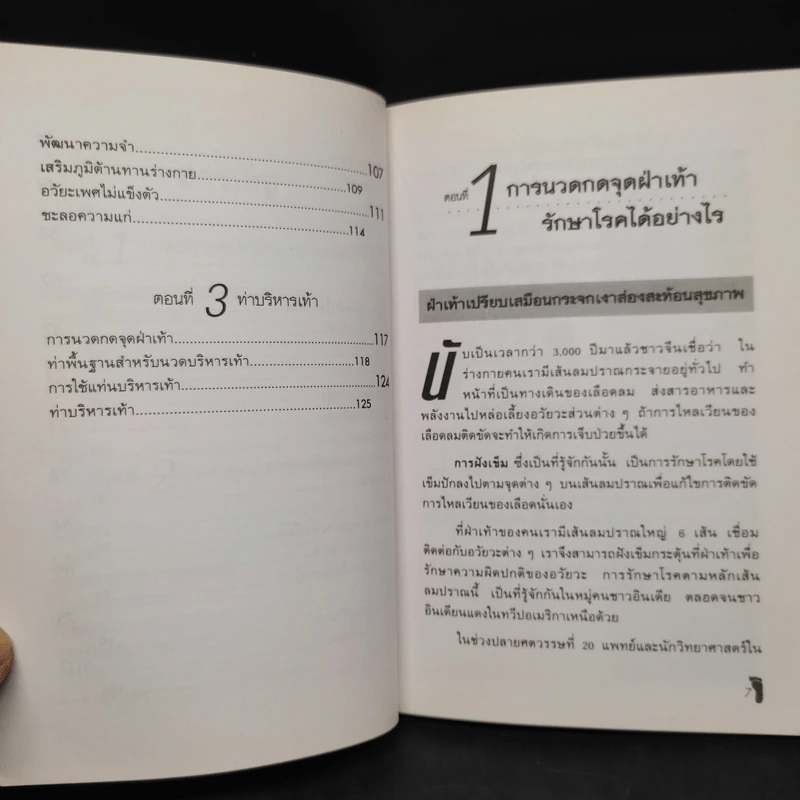 พัฒนาความจำ........................................107
เสริมภูมิต้านทานร่างกาย........................................109
อวัยะเพศไม่แข็งตัว........................................111
ชะลอความแก่........................................114
ตอนที่ 3 ท่าบริหารเท้า
การนวดกดจุดฝ่าเท้า........................................117
ท่าพื้นฐานสำหรับนวดบริหารเท้า........................................118
การใช้แท่นบริหารเท้า........................................124
ท่าบริหารเท้า........................................125
ตอนที่ 1 การนวดกดจุดฝ่าเท้า
รักษาโรคได้อย่างไร
ฝ่าเท้าเปรียบเสมือนกระจกเงาส่องสะท้อนสุขภาพ
นับเป็นเวลากว่า 3,000 ปีมาแล้วชาวจีนเชื่อว่า ใน
ร่างกายคนเรามีเส้นลมปราณกระจายอยู่ทั่วไป ทำ
หน้าที่เป็นทางเดินของเลือดลม ส่งสารอาหารและ
พลังงานไปหล่อเลี้ยงอวัยวะส่วนต่าง ๆ ถ้าการไหลเวียนของ
เลือดลมติดขัดจะทำให้เกิดการเจ็บป่วยขึ้นได้
การฝังเข็ม ซึ่งเป็นที่รู้จักกันนั้น เป็นการรักษาโรคโดยใช้
เข็มปักลงไปตามจุดต่าง ๆ บนเส้นลมปราณเพื่อแก้ไขการติดขัด
การไหลเวียนของเลือดนั่นเอง
ที่ฝ่าเท้าของคนเรามีเส้นลมปราณใหญ่ 6 เส้น เชื่อม
ติดต่อกับอวัยวะต่าง ๆ เราจึงสามารถฝังเข็มกระตุ้นที่ฝ่าเท้าเพื่อ
รักษาความผิดปกติของอวัยวะ การรักษาโรคตามหลักเส้น
ลมปราณนี้ เป็นที่รู้จักกันในหมู่คนชาวอินเดีย ตลอดจนชาว
อินเดียนแดงในทวีปอเมริกาเหนือด้วย
ในช่วงปลายศตวรรษที่ 20 แพทย์และนักวิทยาศาสตร์ใน
7